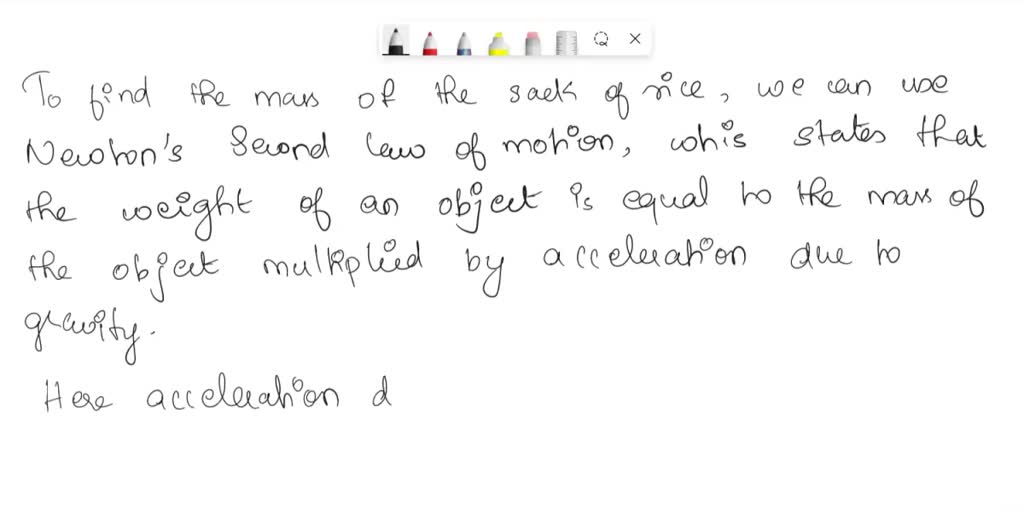 To find the mass of the sack of rice, we can use
Newton's Second law of motion, whis states that
the weight of an object is equal to the mass of
the object multiplied by acceleration due to
gravity.
Here acceleration d